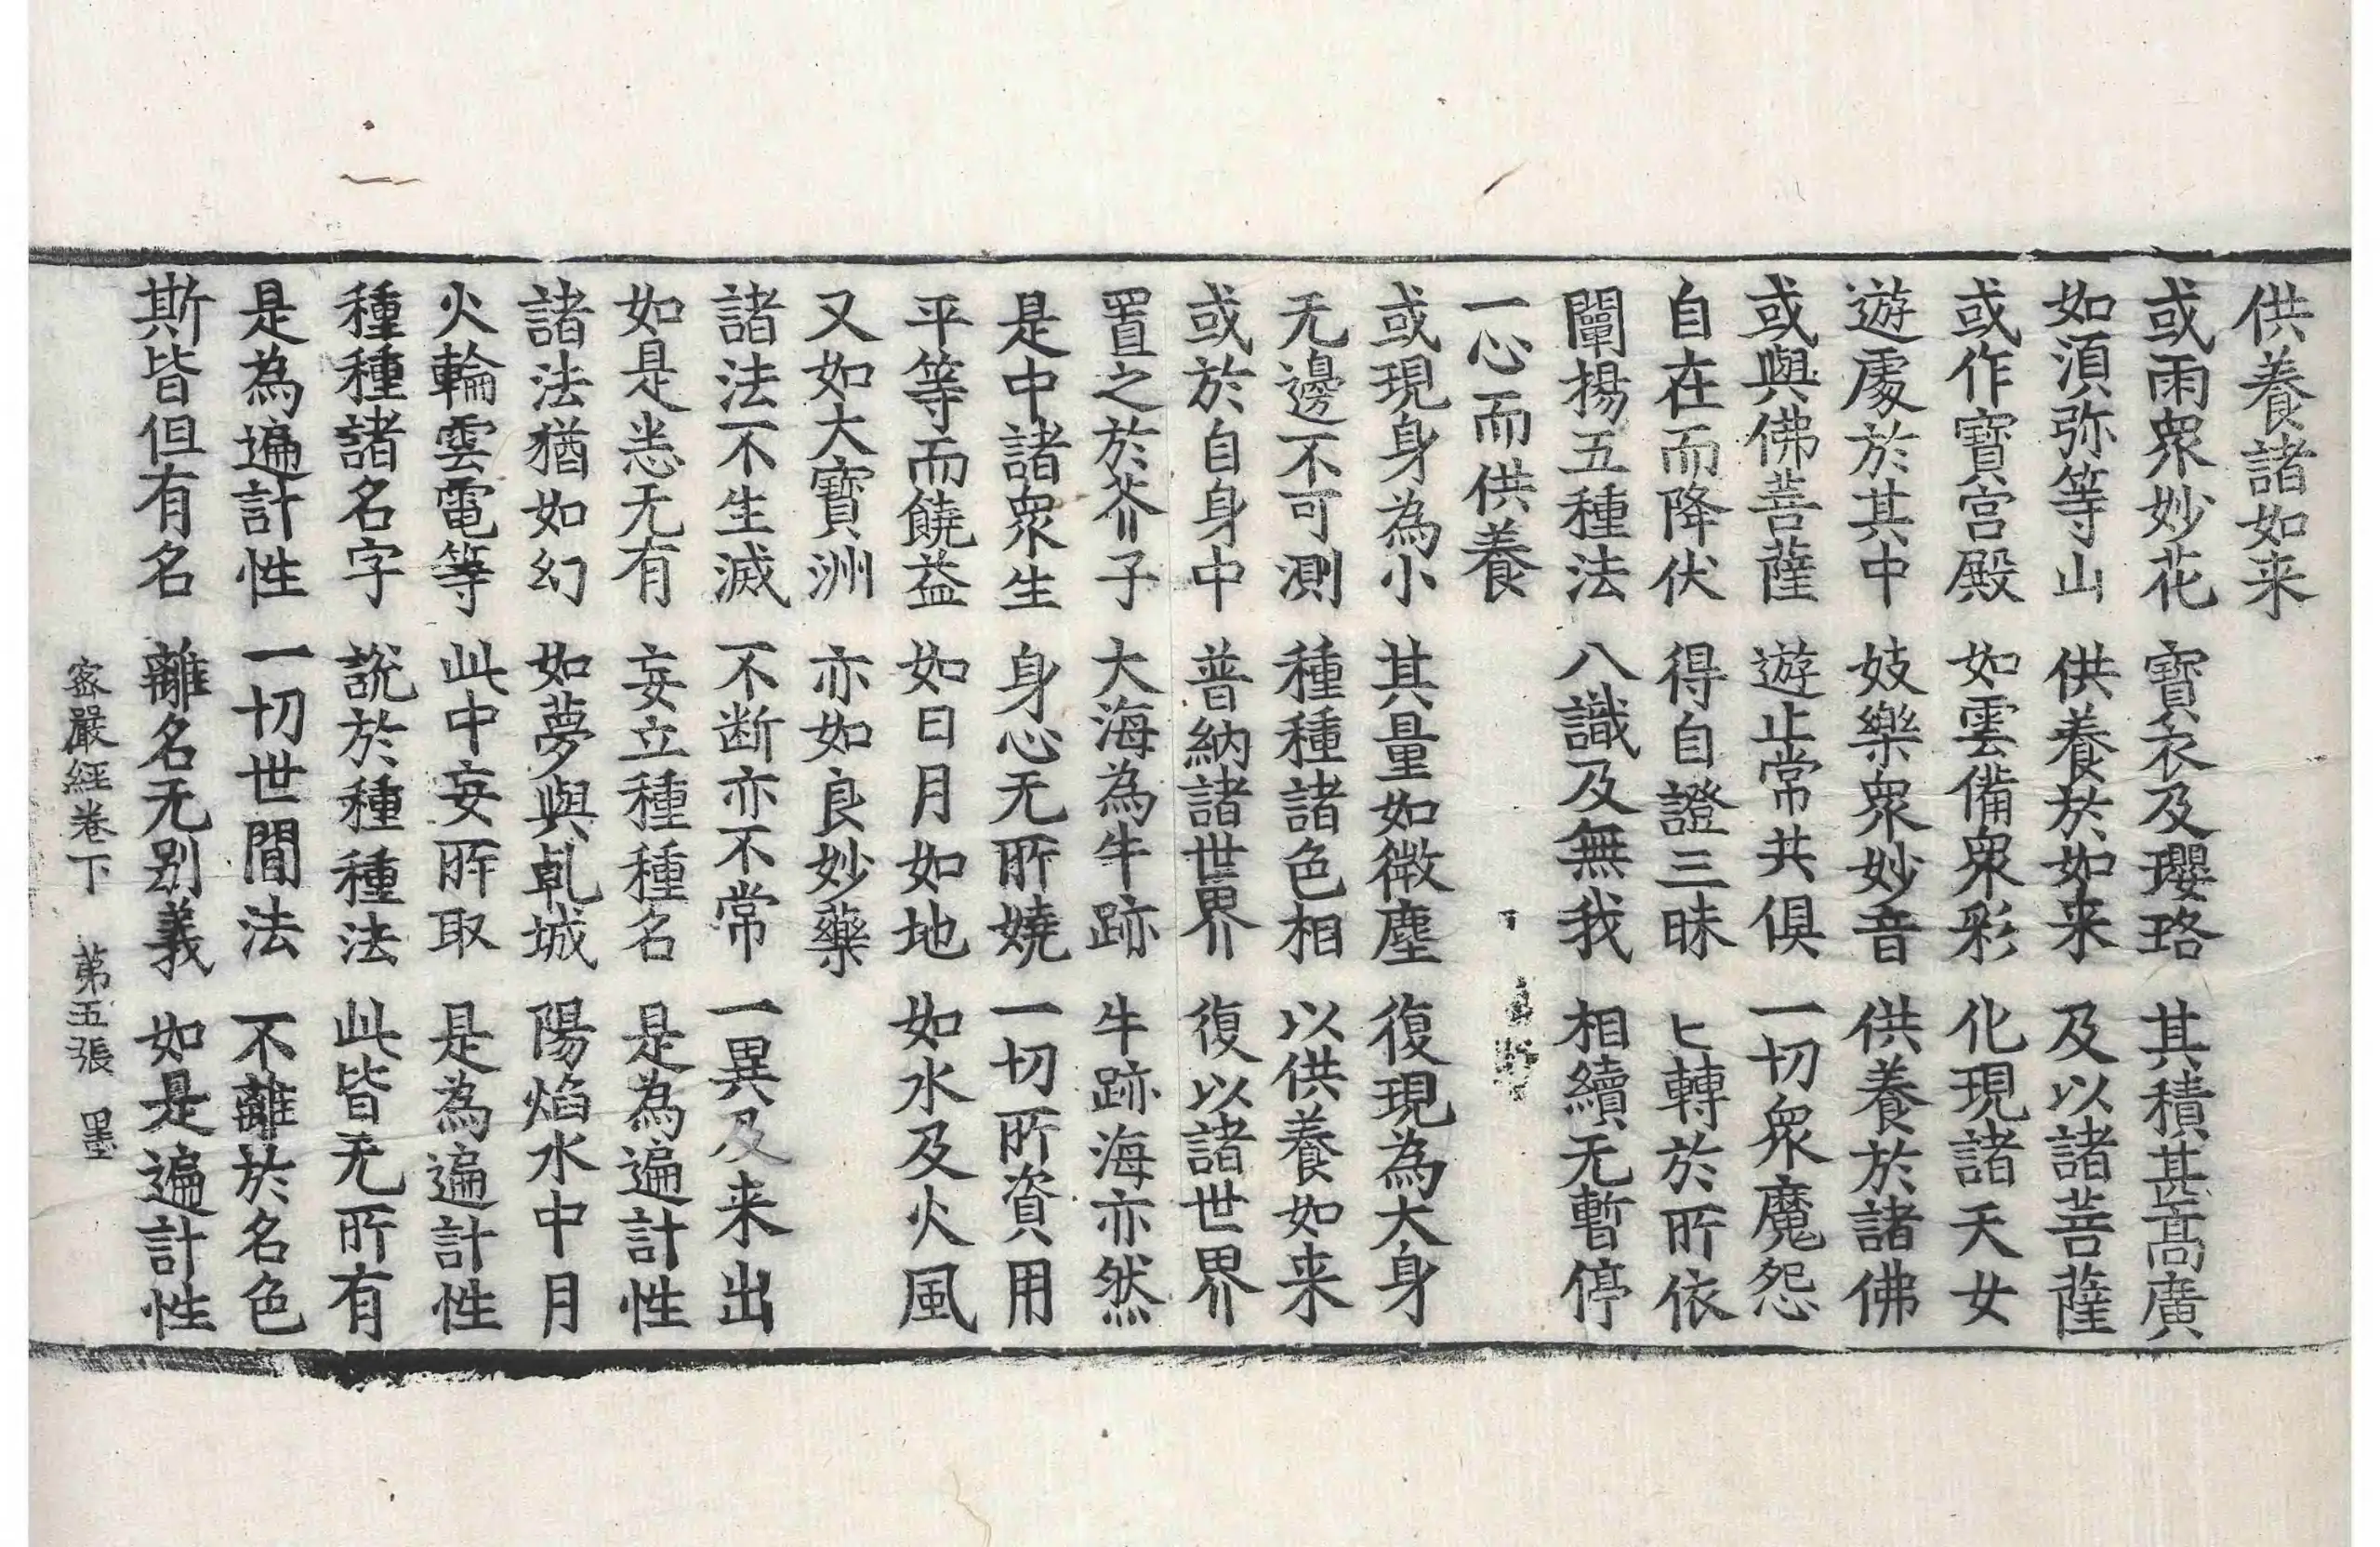 供養諸如来
或雨衆妙花　寶衣及瓔珞　其積甚髙廣
如須弥等山　供養於如来　及以諸菩薩
或作寶宫殿　如雲備衆彩　化現諸天女
遊處於其中　妓樂衆妙音　供養於諸佛
或與佛菩薩　遊止常共俱　一切衆魔怨
自在而降伏　得自證三昧　匕轉於所依
闡揚五種法　八識及無我　相續无暫停
一心而供養
或現身為小　其量如微塵　復現為大身
无邊不可測　種種諸色相　以供養如来
或於自身中　普納諸世界　復以諸世界
置之於芥子　大海為牛跡　牛跡海亦然
是中諸衆生　身心无所嬈　一切所資用
平等而饒益　如日月如地　如水及火風
又如大寶洲　亦如良妙藥
諸法不生滅　不断亦不常　一異及来出
如是悉无有　妄立種種名　是為遍計性
諸法猶如幻　如夢與乹城　陽焰水中月
火輪雲電等　此中妄所取　是為遍計性
種種諸名字　說於種種法　此皆无所有
是為遍計性　一切世間法　不離於名色
斯皆但有名　離名无别義　如是遍計性
宻嚴經卷下　苐五張　墨